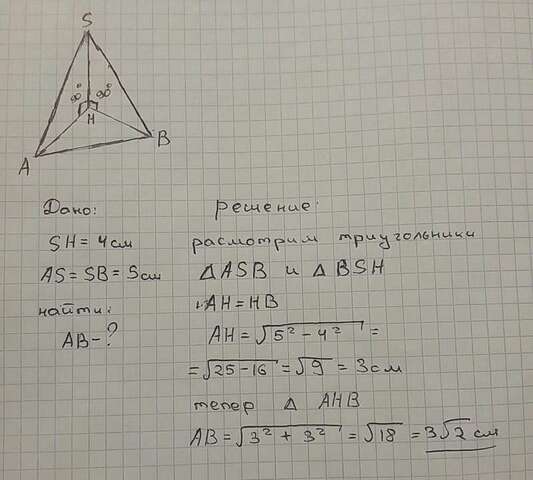 S
90° 90°
H
A
B
Дано:
SH = 4 см
AS = SB = 5 см
найти:
AB - ?
решение:
расмотрим триугольники
Δ ASB и Δ BSH
AH = HB
AH = √5² - 4² =
= √25 - 16 = √9 = 3 см
тепер Δ AHB
AB = √3² + 3² = √18 = 3√2 см